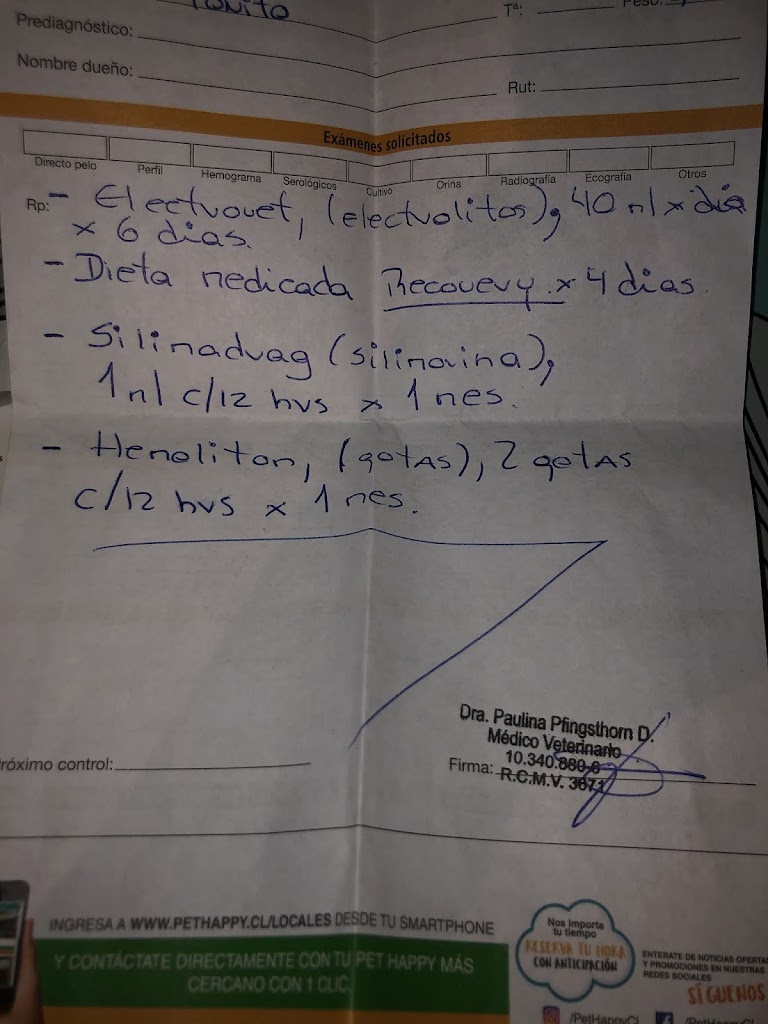 Tª:
Peso:
Prediagnóstico:
Nombre dueño:
Rut:
Exámenes solicitados
Directo pelo
Perfil
Hemograma
Serológicos
Cultivo
Orina
Radiografía
Ecografía
Otros
Rp:
- Electrovet, (electrolitos), 40 ml x día
x 6 días.
- Dieta medicada Recovery x 4 días.
- Silimadrag (silimarina),
1 ml c/12 hrs x 1 mes.
- Hemoliton, (gotas), 2 gotas
c/12 hrs x 1 mes.
Dra. Paulina Pfingsthorn D.
Médico Veterinario
10.340.880-8
R.C.M.V. 3671
Firma:
róximo control:
INGRESA A WWW.PETHAPPY.CL/LOCALES DESDE TU SMARTPHONE
Y CONTÁCTATE DIRECTAMENTE CON TU PET HAPPY MÁS
CERCANO CON 1 CLIC.
Nos importa
tu tiempo
RESERVA TU HORA
CON ANTICIPACIÓN
ENTERATE DE NOTICIAS OFERTAS
Y PROMOCIONES EN NUESTRAS
REDES SOCIALES
SÍGUENOS
/PetHappyCL
/PetHappyCL